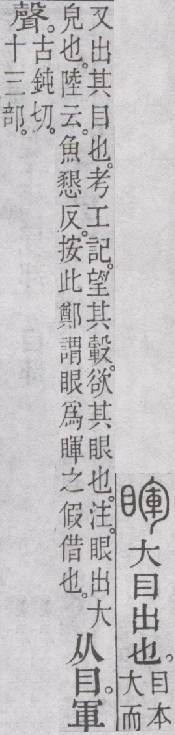 睴大目出也。目本
大而
又出其目也。考工記。望其轂。欲其眼也。注。眼出大
皃也。陸云。魚懇反。按此鄭謂眼爲睴之假借也。
从目。軍
聲。古鈍切。
十三部。